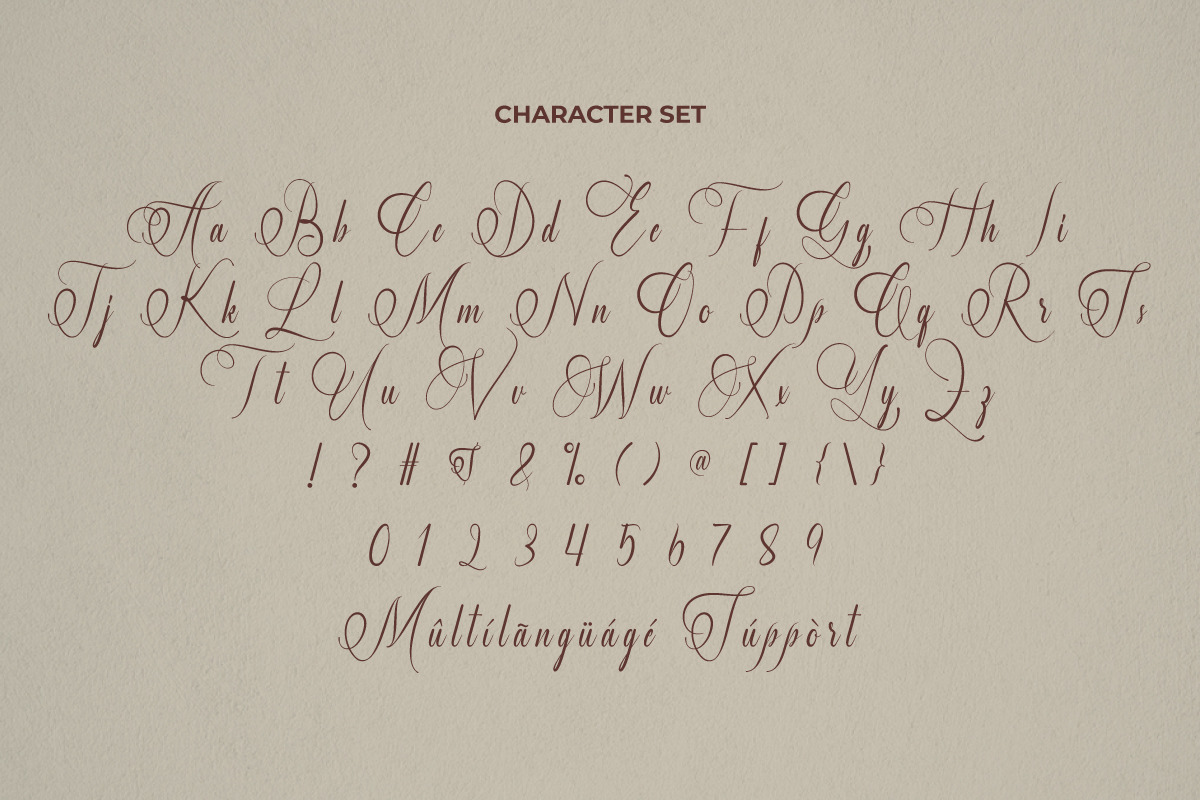 CHARACTER SET
Aa Bb Cc Dd Ee Ff Gg Hh Ii
Jj Kk Ll Mm Nn Oo Pp Qq Rr Ss
Tt Uu Vv Ww Xx Yy Zz
! ? # $ & % ( ) @ [ ] { \ }
0 1 2 3 4 5 6 7 8 9
Mûltílãngüágé Súppòrt